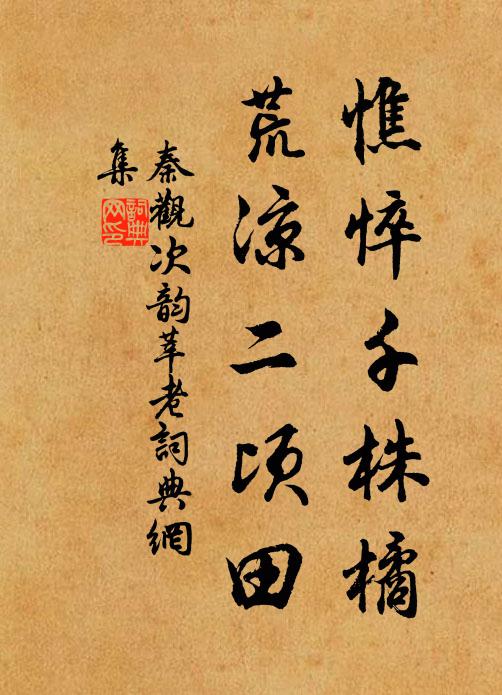 憔悴千株橘
荒凉二顷田
秦觀次韵莘老詞典網
集
詞典网印